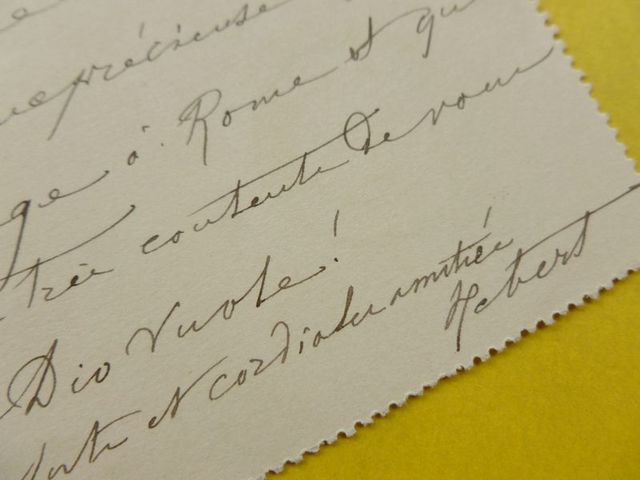 précieuse
à Rome et qu
très contente de vous
Dio vuole!
et cordiale amitié
Hebert